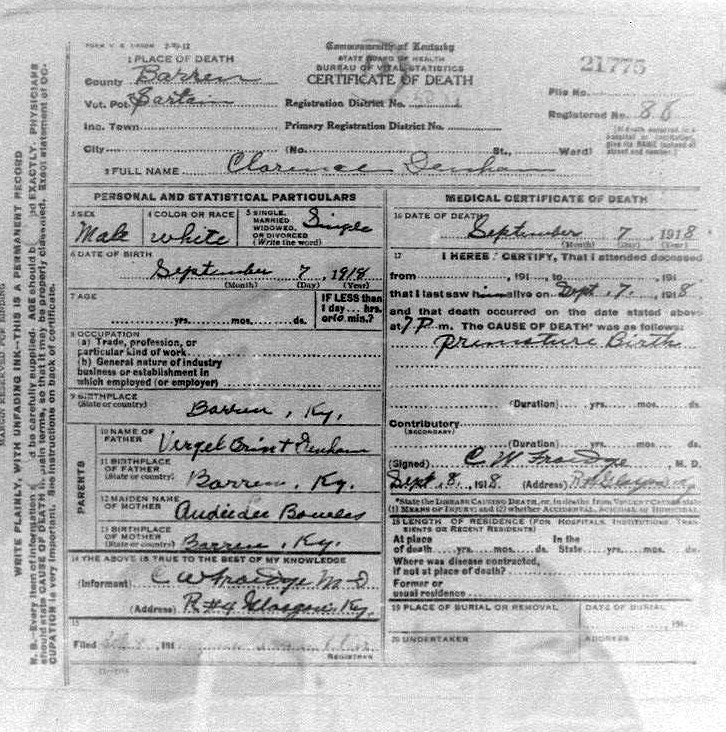 FORM V. S. 7-10-12
Commonwealth of Kentucky
STATE BOARD OF HEALTH
BUREAU OF VITAL STATISTICS
CERTIFICATE OF DEATH
1 PLACE OF DEATH
County Barren
Vot. Pct.
Inc. Town
City (No. St., Ward)
Registration District No.
Primary Registration District No.
21775
File No.
Registered No. 88
(If death occurred in a hospital or institution, give its NAME instead of street and number.)
2 FULL NAME Clarence Denham
PERSONAL AND STATISTICAL PARTICULARS
3 SEX Male
4 COLOR OR RACE white
5 SINGLE, MARRIED WIDOWED, OR DIVORCED (Write the word) Single
6 DATE OF BIRTH
September 7, 1918
(Month) (Day) (Year)
7 AGE
yrs. mos. ds.
IF LESS than 1 day... hrs. or min.?
8 OCCUPATION
(a) Trade, profession, or
particular kind of work
(b) General nature of industry
business or establishment in
which employed (or employer)
9 BIRTHPLACE
(State or country) Barren, Ky.
PARENTS
10 NAME OF FATHER Virgel Denham
11 BIRTHPLACE OF FATHER (State or country) Barren, Ky.
12 MAIDEN NAME OF MOTHER Bowles
13 BIRTHPLACE OF MOTHER (State or country) Barren, Ky.
14 THE ABOVE IS TRUE TO THE BEST OF MY KNOWLEDGE
(Informant) C W Froedge M-D
(Address) R. #4 Glasgow, Ky.
15
Filed , 191
REGISTRAR
MEDICAL CERTIFICATE OF DEATH
16 DATE OF DEATH
September 7, 1918
(Month) (Day) (Year)
17 I HEREBY CERTIFY, That I attended deceased
from , 191 , to , 191
that I last saw him alive on Sept. 7, 1918
and that death occurred on the date stated above
at 7 P. m. The CAUSE OF DEATH* was as follows:
premature Birth
(Duration) yrs. mos. ds.
Contributory
(SECONDARY)
(Duration) yrs. mos. ds.
(Signed) C W Froedge, M. D.
Sept. 8, 1918 (Address) Glasgow Ky
*State the DISEASE CAUSING DEATH, or, in deaths from VIOLENT CAUSES, state
(1) MEANS OF INJURY; and (2) whether ACCIDENTAL, SUICIDAL or HOMICIDAL
18 LENGTH OF RESIDENCE (FOR HOSPITALS, INSTITUTIONS, TRANSIENTS OR RECENT RESIDENTS)
At place of death yrs. mos. ds. In the State yrs. mos. ds.
Where was disease contracted,
if not at place of death?
Former or
usual residence
19 PLACE OF BURIAL OR REMOVAL
DATE OF BURIAL
, 191
20 UNDERTAKER
ADDRESS
MARGIN RESERVED FOR BINDING
WRITE PLAINLY, WITH UNFADING INK—THIS IS A PERMANENT RECORD
N. B.—Every item of information should be carefully supplied. AGE should be stated EXACTLY. PHYSICIANS
should state CAUSE OF DEATH in plain terms, so that it may be properly classified. Exact statement of OC-
CUPATION is very important. See instructions on back of certificate.